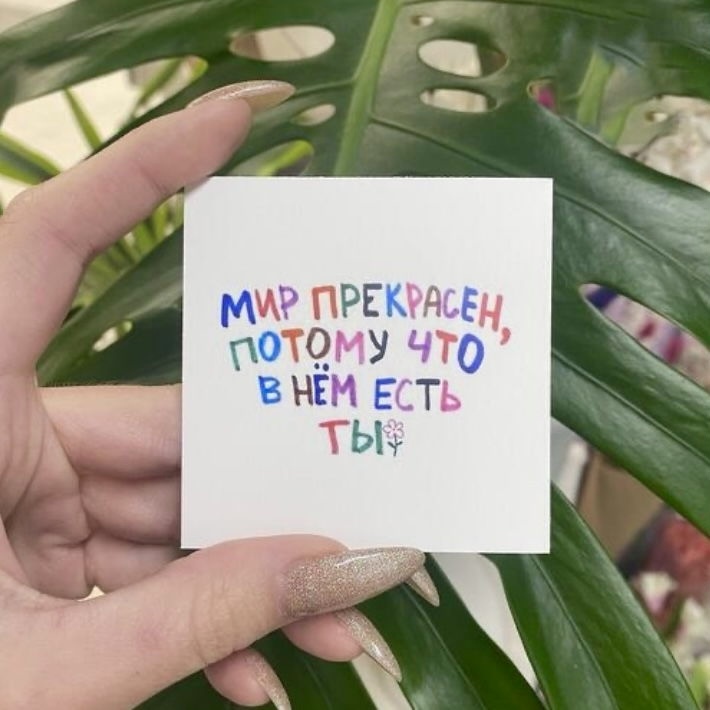 МИР ПРЕКРАСЕН,
ПОТОМУ ЧТО
В НЁМ ЕСТЬ
ТЫ